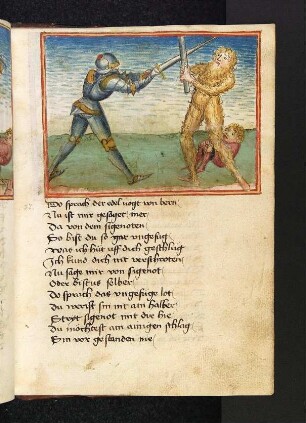 Do sprach der edel uogt von bern
Nu ist mir gesaget mer
Da von dem sigenoten
So bist du so gar vngefug
Was ich hut uff dich geschlug
Ich kund dich nit verschroten
Nu sage mir von sigenot
Oder bistus selber
Do sprach das vngefuge lot
du werist sin nit am halber
Stryt sigenot mit die hie
du mochtest am ainigen schlag
Sin vor gestanden nie